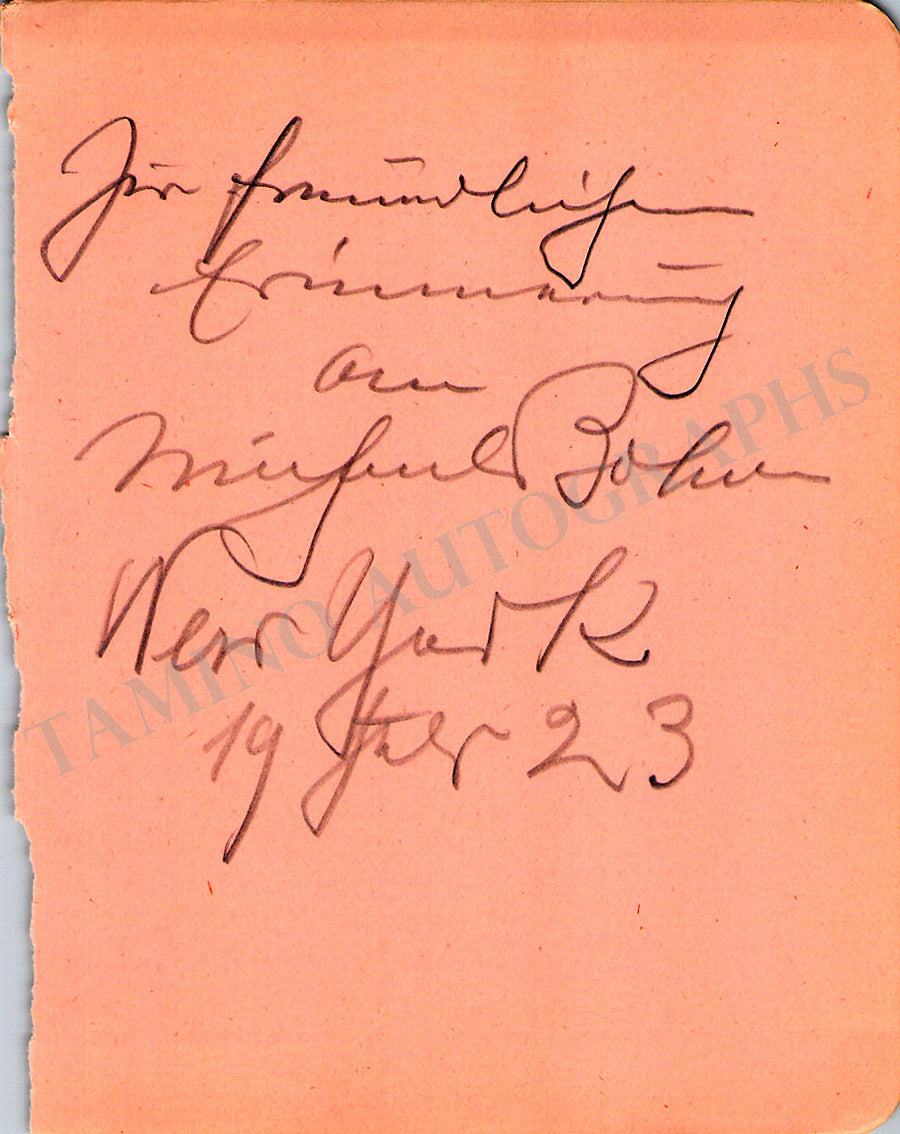 Zur freundlichen
Erinnerung
an
Michael Bohnen
New York
19 Febr 23
TAMINO AUTOGRAPHS